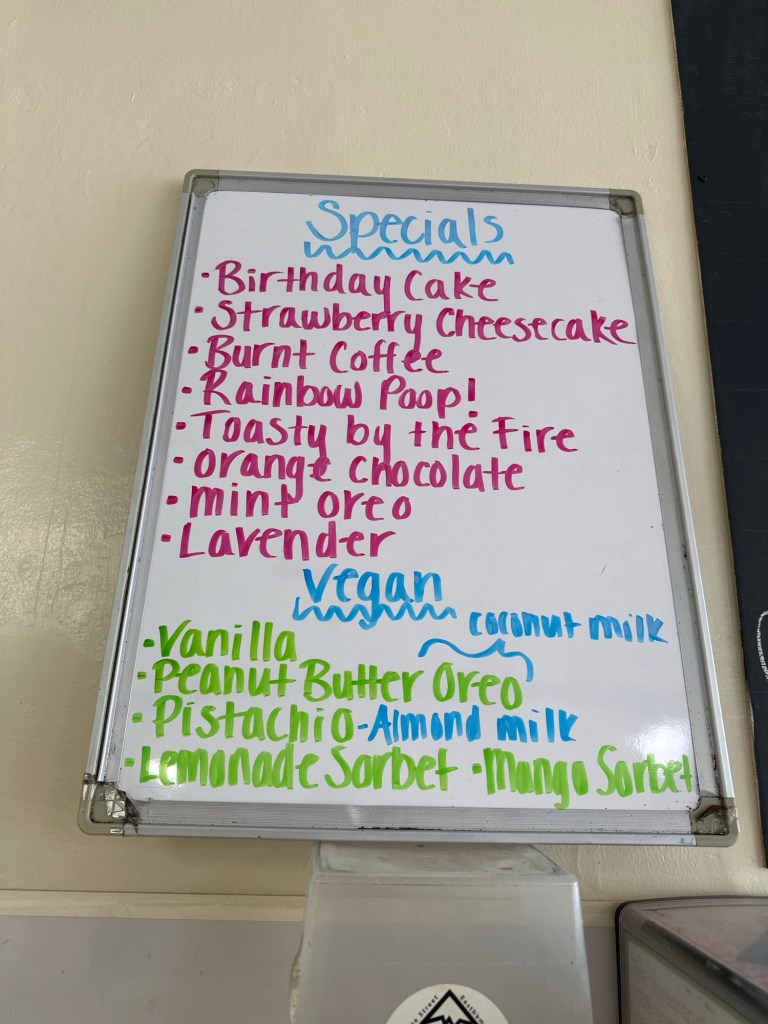 Specials
• Birthday Cake
• Strawberry Cheesecake
• Burnt Coffee
• Rainbow Poop!
• Toasty by the Fire
• orange chocolate
• mint oreo
• Lavender
Vegan
coconut milk
• Vanilla
• Peanut Butter Oreo
• Pistachio - Almond milk
• Lemonade Sorbet • Mango Sorbet
Street Eastham